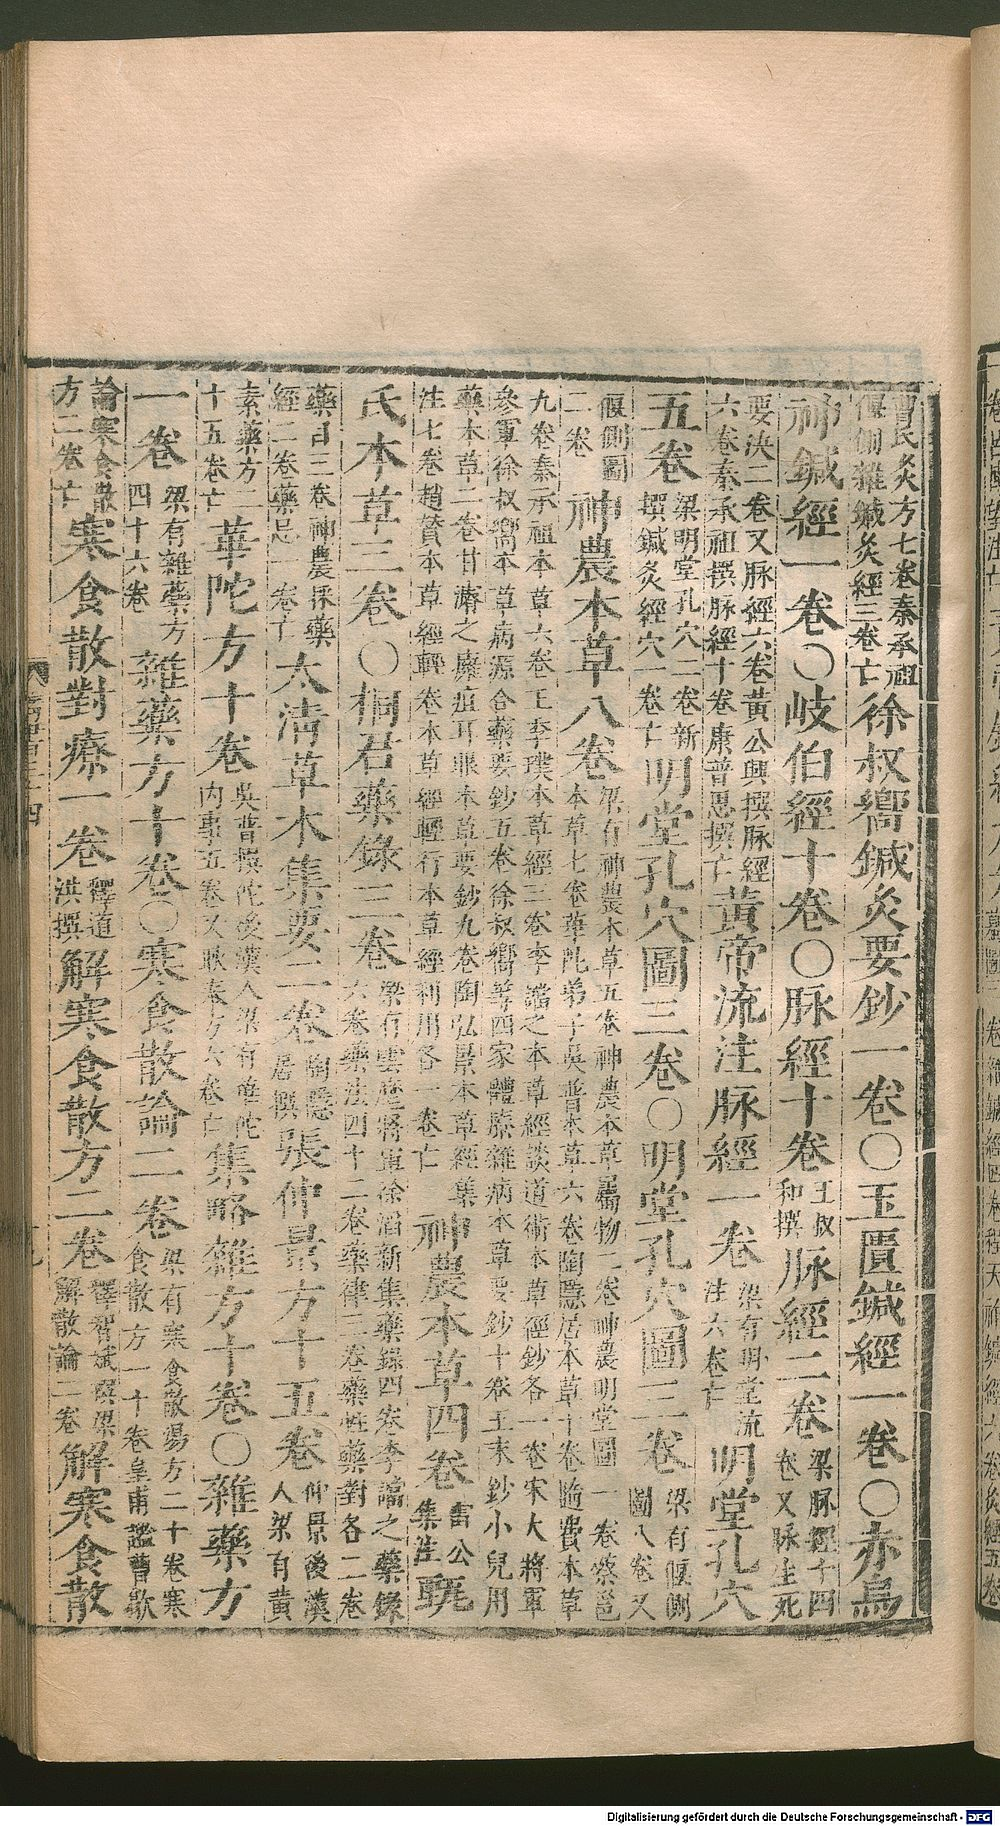 曹氏灸方七卷秦承祖
偃側雜鍼灸經三卷亡徐叔嚮鍼灸要鈔一卷〇玉匱鍼經一卷〇赤烏
神鍼經一卷〇岐伯經十卷〇脉經十卷王叔
和撰脉經二卷梁脉經十四
卷又脉生死
要決二卷又脉經六卷黃公興撰脉經
六卷秦承祖撰脉經十卷康普思撰亡黃帝流注脉經一卷梁有明堂流
注六卷亡明堂孔穴
五卷梁明堂孔穴二卷新
撰鍼灸經穴一卷亡明堂孔穴圖三卷〇明堂孔穴圖三卷梁有偃側
圖八卷又
偃側圖
二卷神農本草八卷梁有神農本草五卷神農本草屬物二卷神農明堂圖一卷蔡邕
本草七卷華陀弟子吳普本草六卷陶隱居本草十卷隨費本草
九卷秦承祖本草六卷王季璞本草經三卷李譡之本草經談道術本草徑鈔各一卷宋大將軍
參軍徐叔嚮本草病源合藥要鈔五卷徐叔嚮等四家體療雜病本草要鈔十卷王末鈔小兒用
藥本草二卷甘濬之癰疽耳眼本草要鈔九卷陶弘景本草經集
注七卷趙贊本草經輕卷本草經輕行本草經利用各一卷亡神農本草四卷雷公
集注甄
氏本草三卷〇桐君藥錄三卷梁有雲麾將軍徐滔新集藥錄四卷李譡之藥錄
六卷藥法四十二卷藥律三卷藥性藥對各二卷
藥目三卷神農採藥
經二卷藥忌一卷亡太清草木集要二卷陶隱
居撰張仲景方十五卷仲景後漢
人梁有黃
素藥方二
十五卷亡華陀方十卷吳普撰佗後漢人梁有華佗
內事五卷又耿奉方六卷亡集略雜方十卷〇雜藥方
一卷梁有雜藥方
四十六卷雜藥方十卷〇寒食散論二卷梁有寒食散湯方二十卷寒
食散方一十卷皇甫謐曹歙
論寒食散
方二卷亡寒食散對療一卷釋道
洪撰解寒食散方二卷釋智斌撰梁
解散論二卷解寒食散
Digitalisierung gefördert durch die Deutsche Forschungsgemeinschaft - DFG